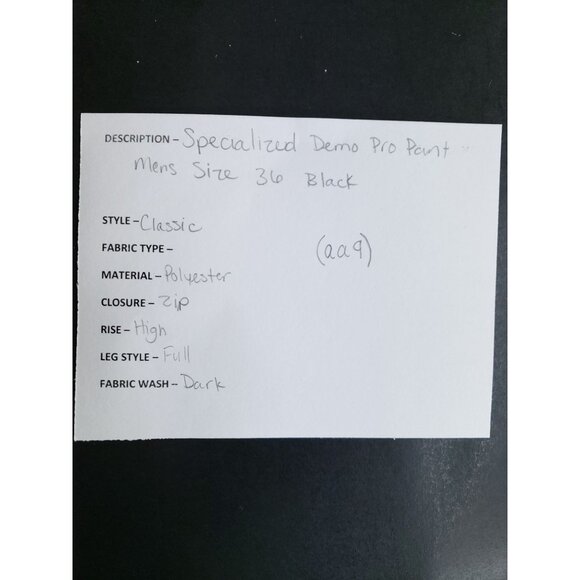 DESCRIPTION – Specialized Demo Pro Pant
Mens Size 36 Black
STYLE – Classic
FABRIC TYPE –
(aa9)
MATERIAL – Polyester
CLOSURE – Zip
RISE – High
LEG STYLE – Full
FABRIC WASH – Dark